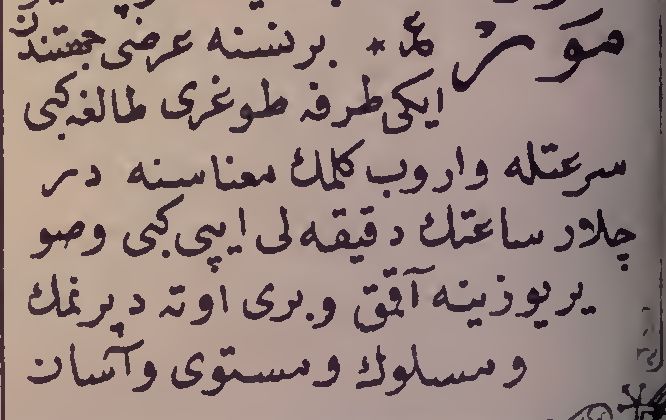 مَوْرْ ع * برنسنه عرضی جهتندن
ایکی طرفه طوغری طالغه کبی
سرعتله واروب کلمك معناسنه در
چلار ساعتك دقیقه لی ایپی کبی وصو
یر یوزینه آقمق وبری اوته دپرنمك
ومسلوك ومستوی وآسان